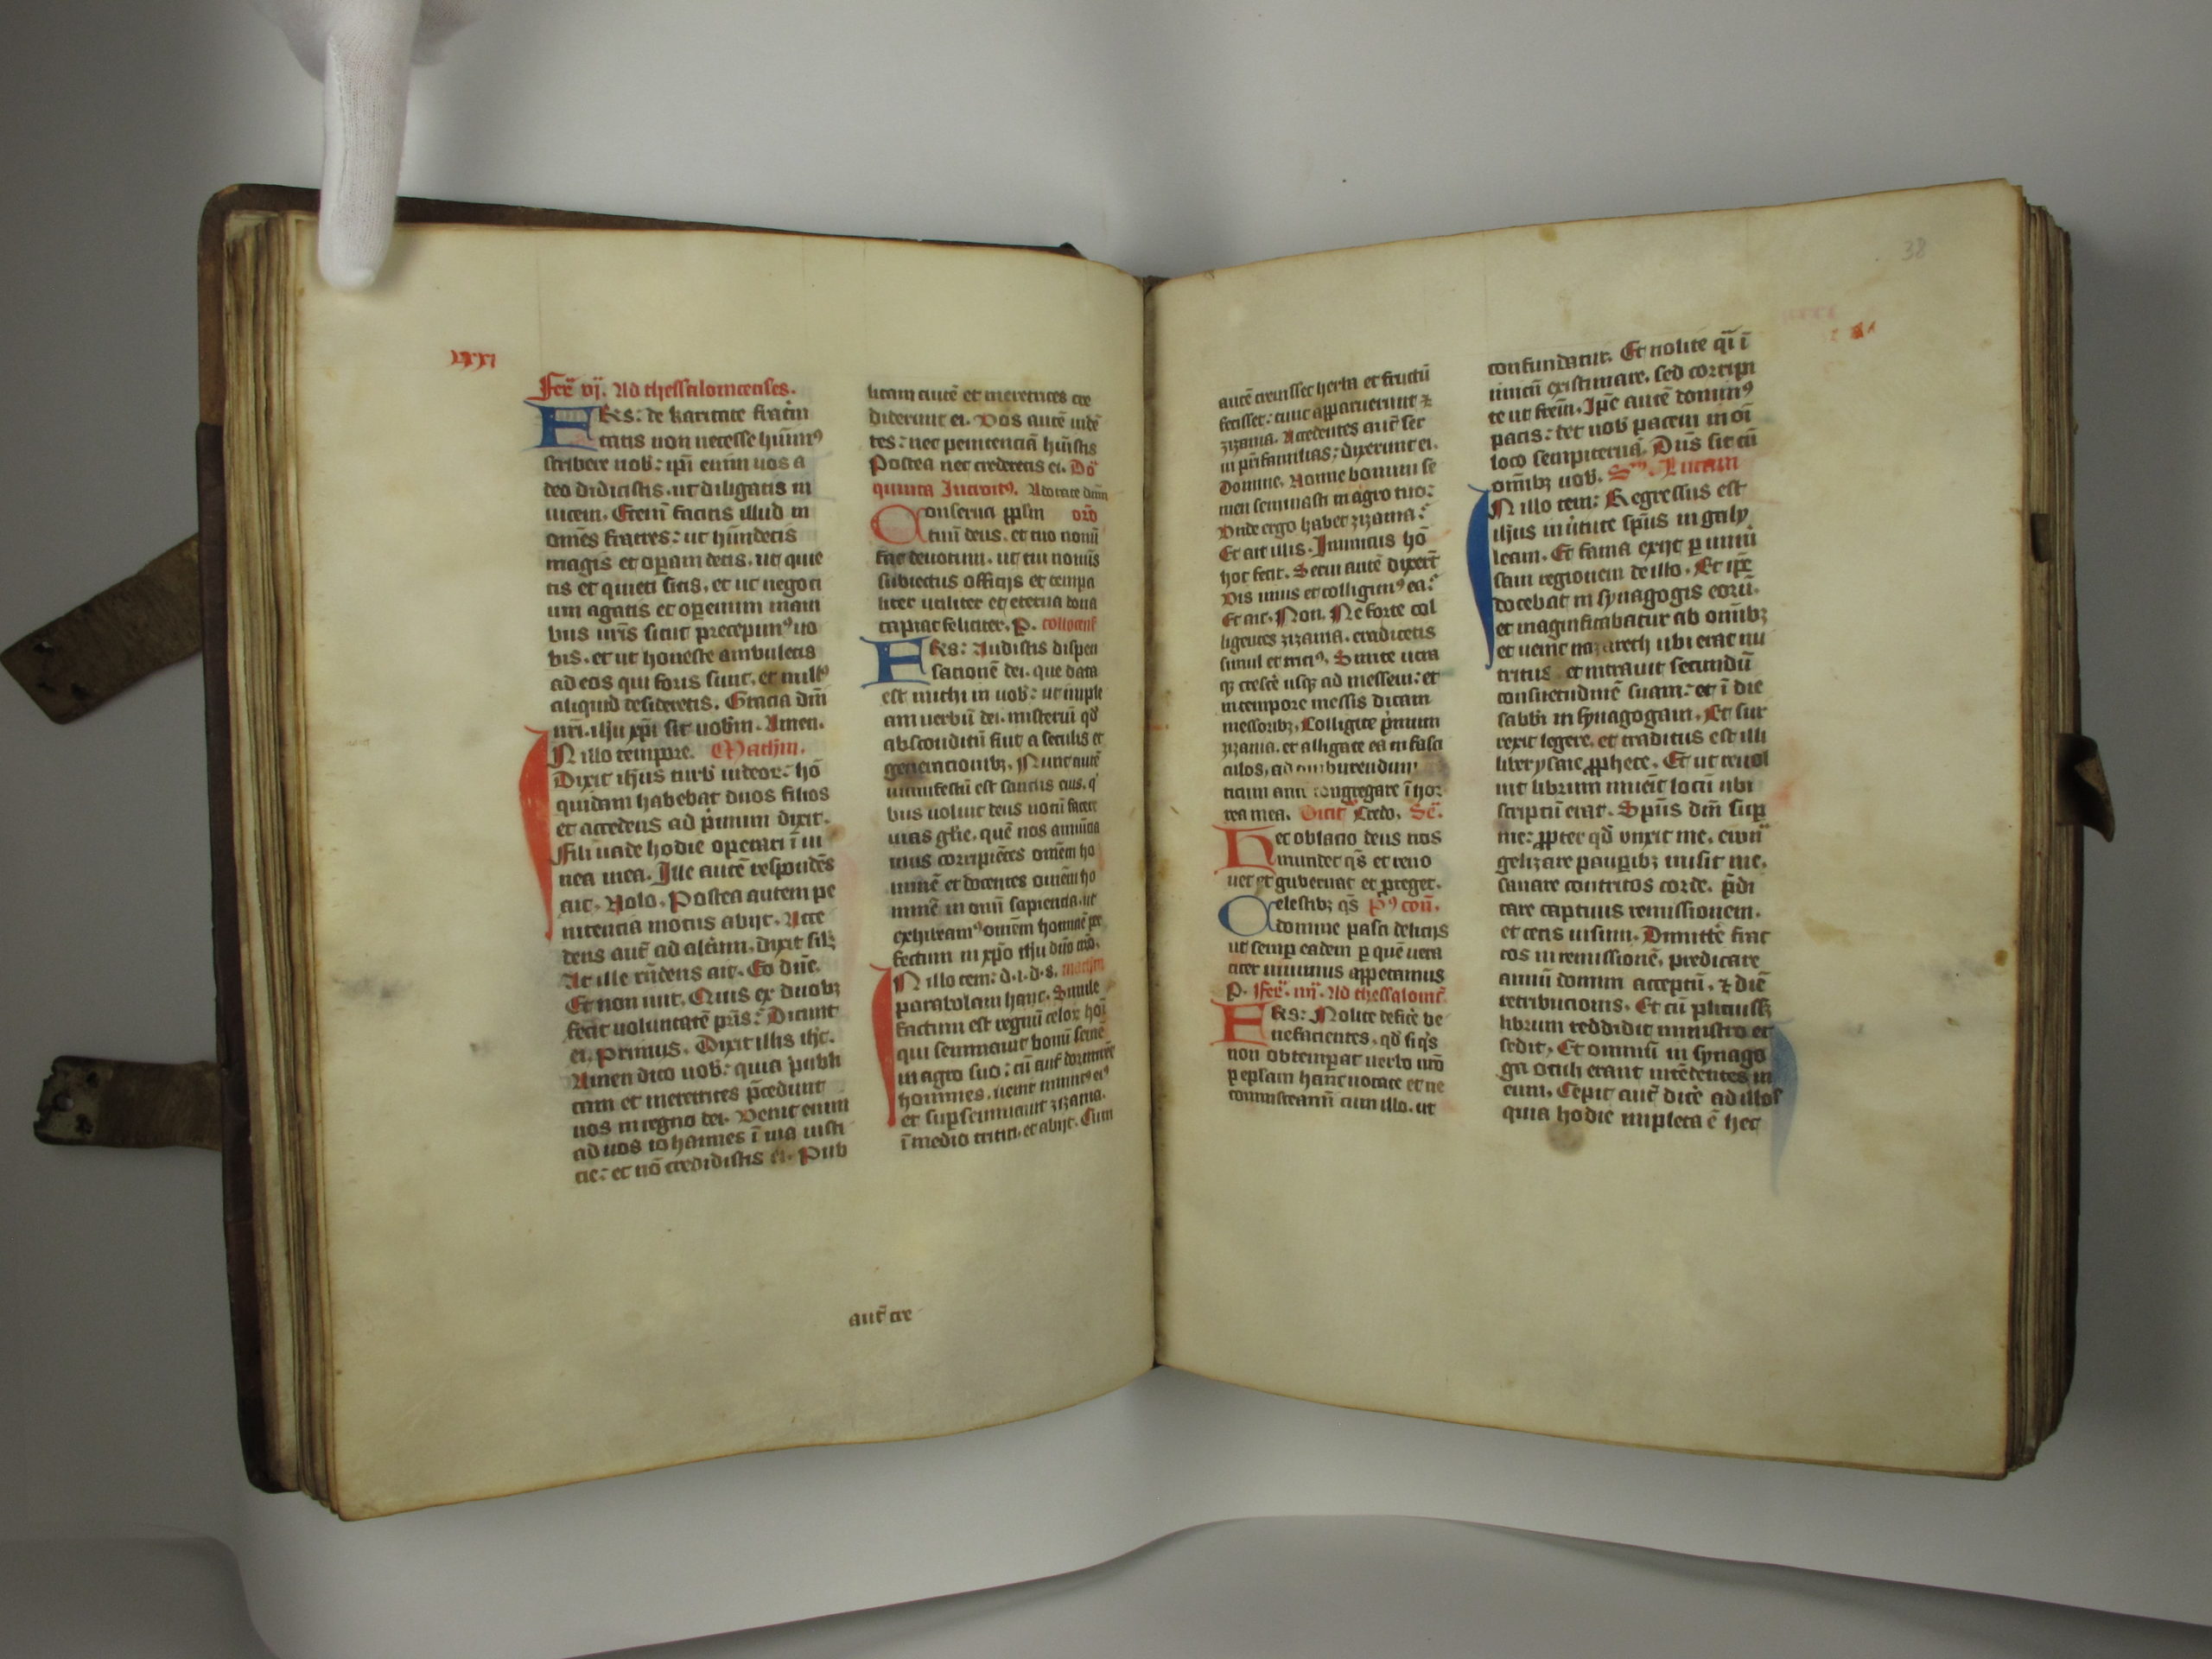 lxxi
Fer̄ vj. Ad thessalonicenses.
FRs: de karitate frat̾ni
tatis non necesse hūim⁹
scribere uob: ip̄i enim uos a
deo didicistis. ut diligatis in
uicem. Eteni facitis illud in
om̄es fratres: ut hūndetis
magis et op̄am detis. ut quie
tis et quieti sitis. et ut negoti
um agatis et op̄emini mani
bus ur̄is sicut precepim⁹ uo
bis. et ut honeste ambuletis
ad eos qui foris sunt. et null⁹
aliquid desideretis. Gracia dn̄i
nr̄i. ihu xp̄i sit uobm̄. Amen.
IN illo tempore. Mathm̄.
Dixit ihūs turb̄ iudeor: hō
quidam habebat duos filios
et accedens ad p̾imum dixit.
Fili uade hodie operari ī ui
nea mea. Ille autē respondēs
ait. Nolo. Postea autem pe
nitencia motus abijt. Acce
dens aut̄ ad alt̾um. dixit silꝫ
At ille rn̄dens ait. Eo dn̄e.
Et non iuit. Quis ex duobꝫ
fecit uoluntatē pr̄is: Dicunt
ei. Primus. Dixit illis ihc̄.
Amen dico uob: quia publi
cani et meretrices p̄cedunt
uos in regno dei. Venit enim
ad uos iohannes ī uia iusti
cie: et nō credidistis ei. Pub
licani autē et meretrices cre
diderunt ei. Vos autē uidē
tes: nec penitenciā hūistis
Postea nec crederetis ei. Dō
quinta Introit⁹. Adorate dm̄
Conserua ppl̄m orō
tuū deus. et tuo nomī
fac deuotum. ut tui nomīs
subiectus officijs et tempa
liter utiliter et eterna dona
capiat feliciter. P. collocenf̄
FRs: Audistis dispen
sacionē dei. que data
est michi in uob: ut imple
am uerbū dei. misteriū qd̄
absconditū fuit a seculis et
generacionibꝫ. Nunc autē
manifestū est sanctis eius. q
bus uoluit deus notū facere
uias gl̄ie. quē nos annūcia
mus corripiētes om̄em ho
minē et docentes om̄em ho
minē in omī sapiencia. ut
exhibeam⁹ om̄em hominē per
fectum in xp̄o ihu dn̄o nrō.
IN illo tem: d. i. d. s. mathm̄
parabolam hanc. Simile
factum est regnū celoꝝ hoī
qui seminauit bonū semē
in agro suo: cū aut̄ dormirēt
homines. uenit inimic⁹ ei⁹
et supseminauit zizania.
ī medio tritici. et abijt. Cum
aut̄ cre
38
autē creuisset herba et fructū
fecisset: tunc apparuerunt ⁊
zizania. Accedentes aut̄ ser
ui pr̄isfamilias: dixerunt ei.
Domine. Nonne bonum se
men seminasti in agro tuo:
Vnde ergo habet zizania:
Et ait illis. Inimicus hō
hoc fecit. Serui autē dixert̄
Vis imus et colligim⁹ ea:
Et ait. Non. Ne forte col
ligentes zizania. eradicetis
simul et tritic⁹. Sinite utra
qꝫ cresce̾ usqꝫ ad messem: et
in tempore messis dicam
messoribꝫ. Colligite p̾mum
zizania. et alligate ea in fasci
culos. ad comburendum
ticum aut̄ congregate ī hor
rea mea. Dicit̾ Credo. Sē.
Hec oblacio deus nos
mundet qs̄ et reno
uet et gubernat et proteget.
Celestibꝫ qs̄ P⁹ com̄.
domine pasti delicijs
ut semp eadem p quē uera
citer uiuimus appetamus
P. Fer̄. iiij. Ad thessalonic̄.
FRs: Nolite defice̾ be
nefacientes. qd̄ si qs
non obtemperat uerbo nrō
p epl̄am hanc notate et ne
commisceamī cum illo. ut
confundatur. Et nolite qī ī
imicū existimare. sed corripi
te ut fr̄em. Ip̄e autē domin⁹
pacis: det uob pacem in oī
loco sempiternā. Dn̄s sit cū
om̄ibꝫ uob. Sm̄. Lucam
IN illo tem: Regressus est
ihūs in ūtute spūs in galy
leam. Et fama exijt p uniū
sam regionem de illo. Et ip̄e
docebat in synagogis eorū.
et magnificabatur ab omībꝫ
et uenit nazareth ubi erat nu
tritus et intrauit secundū
consuetudinē suam: et ī die
sabb̄i in synagogam. Et sur
rexit legere. et traditus est illi
liber ysaie pphete. Et ut reuol
uit librum inuenit locū ubi
scriptū erat. Spūs dn̄i sup
me: ppter qd̄ unxit me. ewā
gelizare pauperibꝫ misit me.
sanare contritos corde. p̄di
care captiuis remissionem.
et cecis uisum. Dimitte̾ frac
tos in remissionē. predicare
annū domini acceptū. ⁊ diē
retribucionis. Et cū plicuissꝫ
librum reddidit ministro et
sedit. Et omniū in synago
ga oculi erant intēdentes in
eum. Cepit aut̄ dice̾ ad illos
quia hodie impleta ē hec